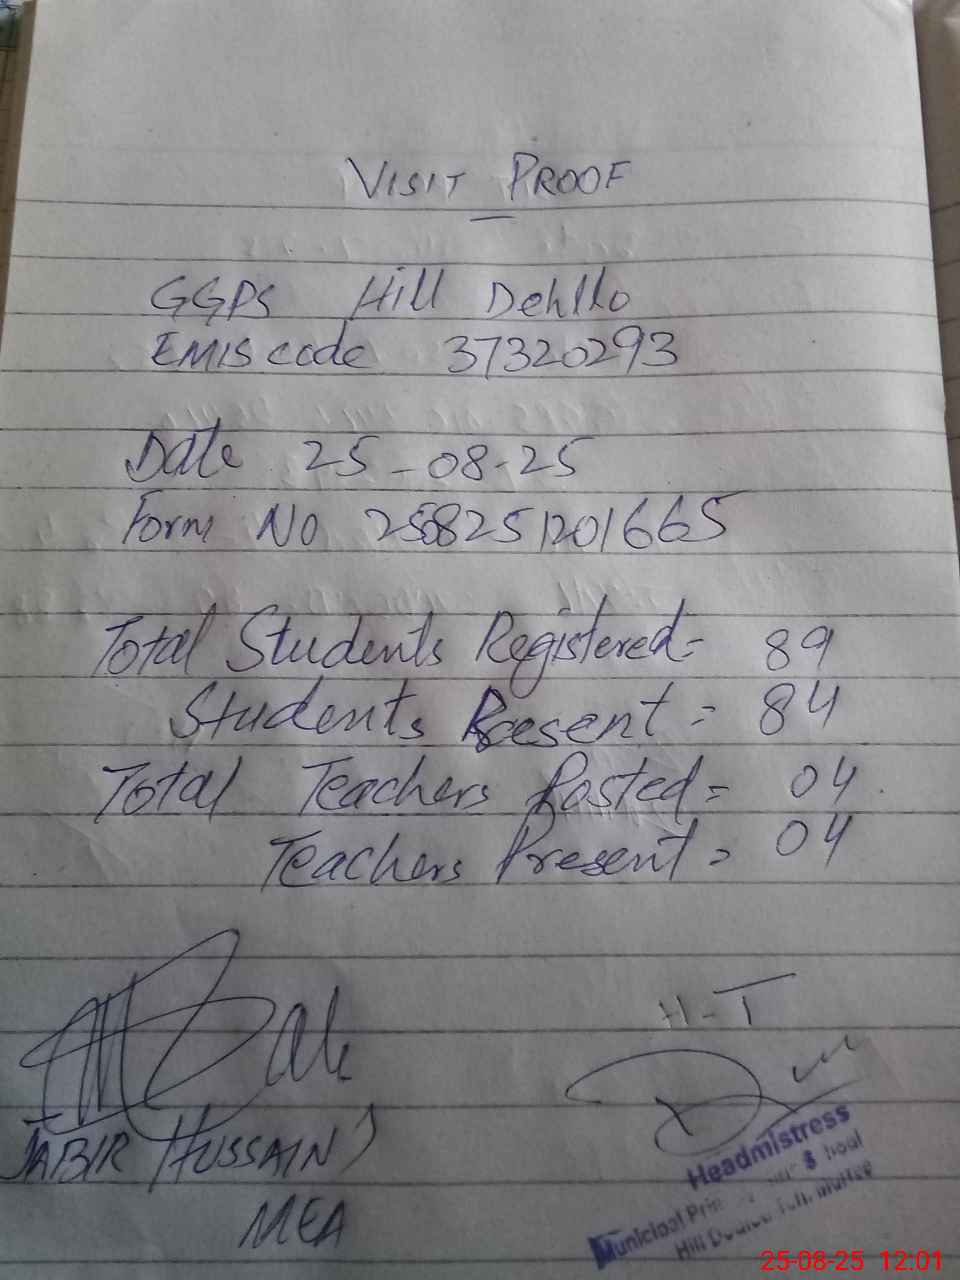 VISIT PROOF
GGPS Hill Dehllo
EMIS code 37320293
Date 25-08-25
Form No 2508251201665
Total Students Registered = 89
Students Present = 84
Total Teachers Posted = 04
Teachers Present = 04
H-T
JABIR HUSSAIN
MEA
Headmistress
Municipal
Hill
25-08-25 12:01